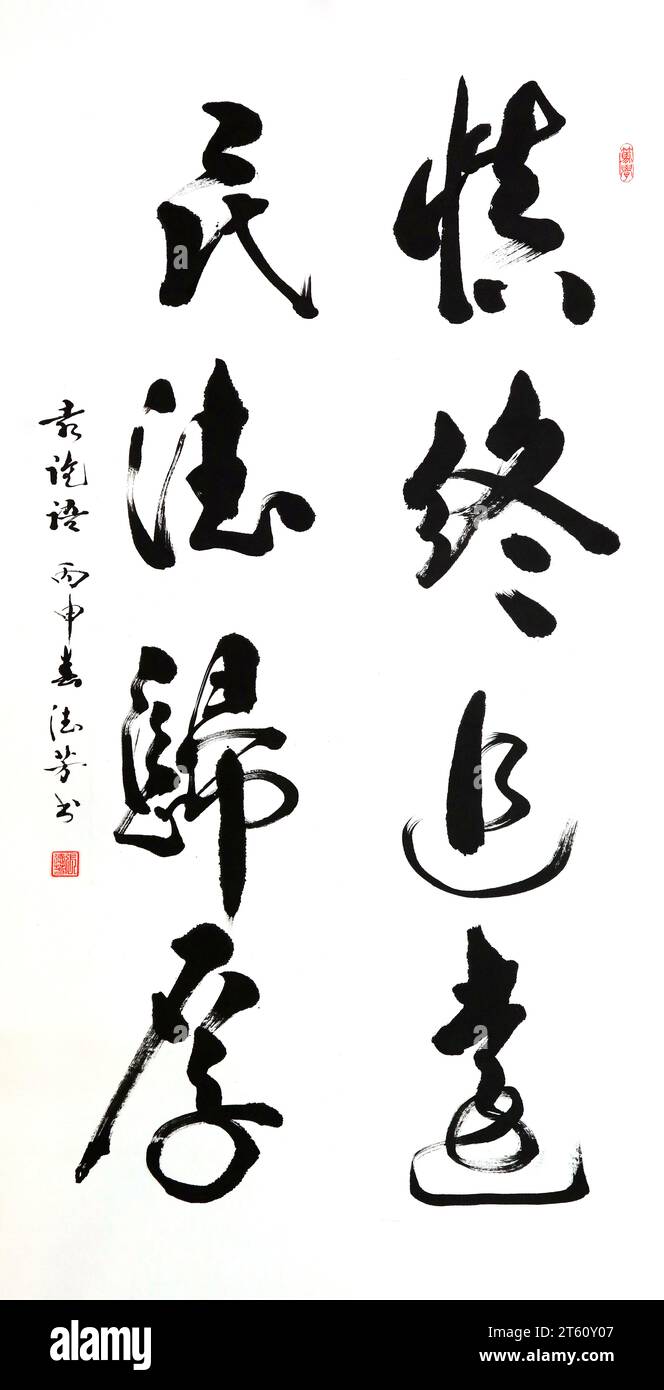 慎終追遠
民德歸厚
丙申春德芳书
alamy
Image ID: 2T60Y07
www.alamy.com